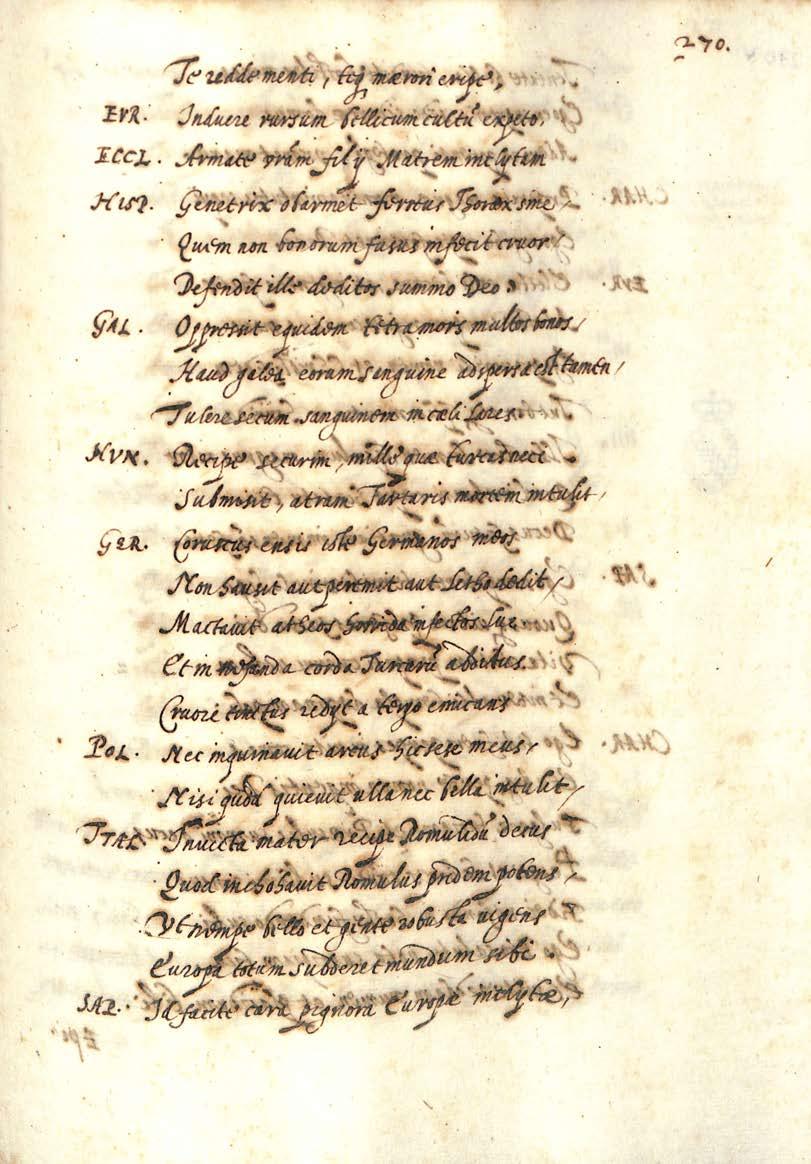 270.
Te redde menti, teq; mærori eripe,
EVR. Induere rursum bellicum cultū expeto,
ECCL. Armate vrām filij Matrem inclytam
HISP. Genetrix obarmet ferreus Thorax sine,
Quem non bonorum fusus infecit cruor,
Defendit ille deditos summo Deo
GAL. Oppressit equidem tetra mors multos bonos,
Haud galea eorum sanguine adspersa est tamen,
Tulere secum sanguinem in cæli Lares
HVN. Recipe securim, mille quæ turcas neci
Submisit, atram Tartaris mortem intulit,
GER. Coruscus ensis iste Germanos meos
Non hausit aut peremit aut Letho dedit,
Mactavit atheos horrida infectos lue
Et in nefanda corda Turcarū abditus
Cruore tinctus redijt a tergo emicans
POL. Nec inquinavit arcus hic sese meus,
Nisi quod quievit ulla nec bella intulit,
ITAL. Invicta mater recipe Romulidū decus
Quod inchohavit Romulus pridem potens,
Vt nempe bello et gente robusta vigens
Europa totum subderet mundum sibi
SAP. Id facite cara pignora Europæ inclytæ,